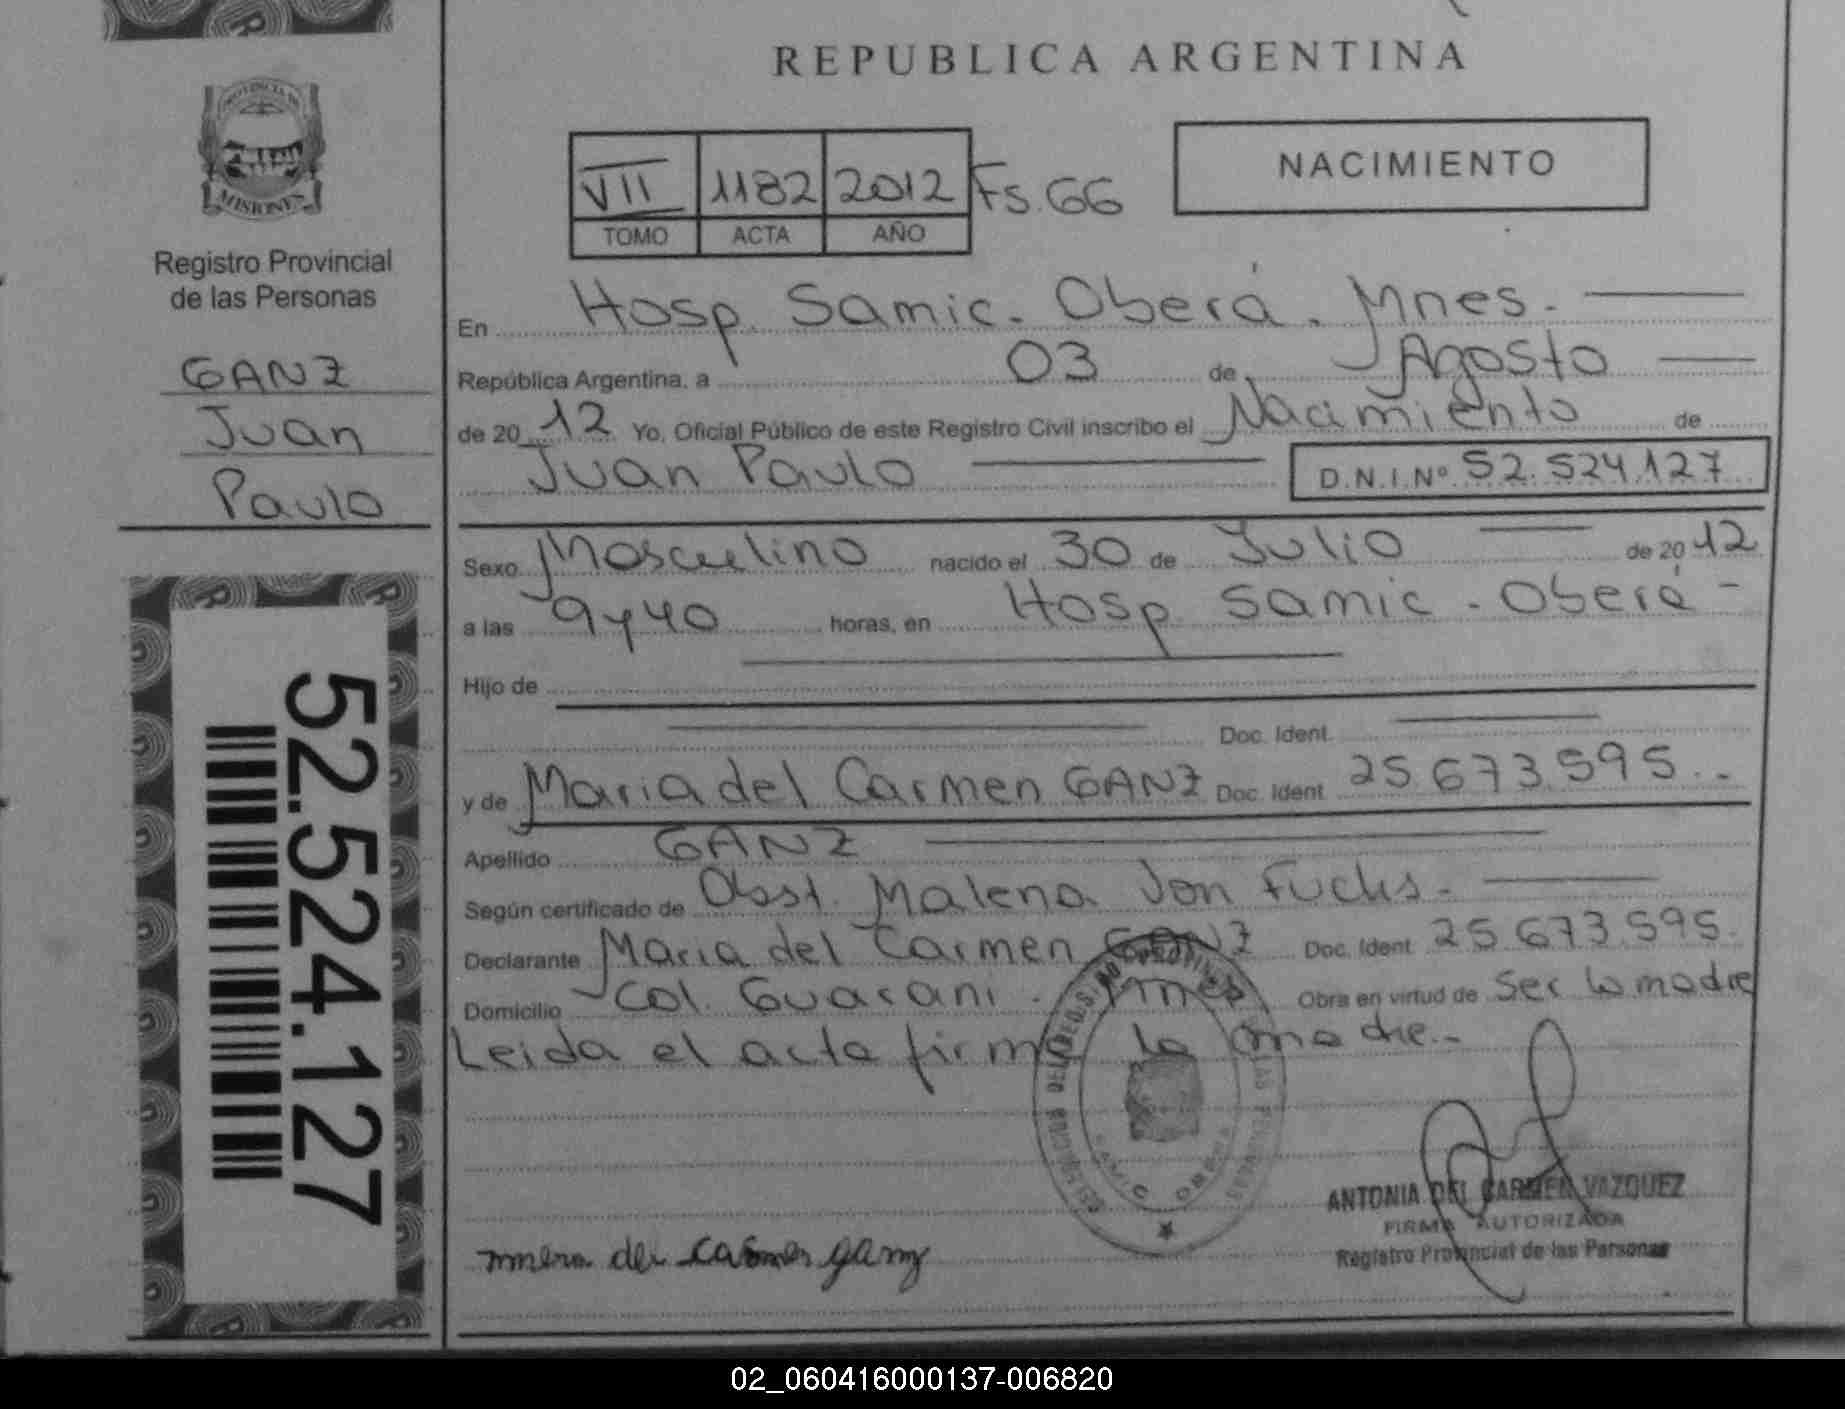 REPUBLICA ARGENTINA
PROVINCIA DE
MISIONES
Registro Provincial
de las Personas
GANZ
Juan
Paulo
52.524.127
VII 1182 2012 Fs. 66
TOMO ACTA AÑO
NACIMIENTO
En Hosp. Samic. Oberá. Mnes.
República Argentina, a 03 de Agosto
de 2012 Yo, Oficial Público de este Registro Civil inscribo el Nacimiento de
Juan Paulo D.N.I.Nº 52.524.127
Sexo Masculino nacido el 30 de Julio de 2012
a las 9 y 40 horas, en Hosp. Samic. Oberá
Hijo de
Doc. Ident.
y de Maria del Carmen GANZ Doc. Ident. 25.673.595.
Apellido GANZ
Según certificado de Obst. Malena Von Fuchs.
Declarante Maria del Carmen GANZ Doc. Ident. 25.673.595.
Domicilio Col. Guarani. Mnes Obra en virtud de Ser la madre
Leida el acta firma la madre.
SAMIC OBERA
ANTONIA DEL CARMEN VAZQUEZ
FIRMA AUTORIZADA
Registro Provincial de las Personas
del Carmen ganz
02_060416000137-006820